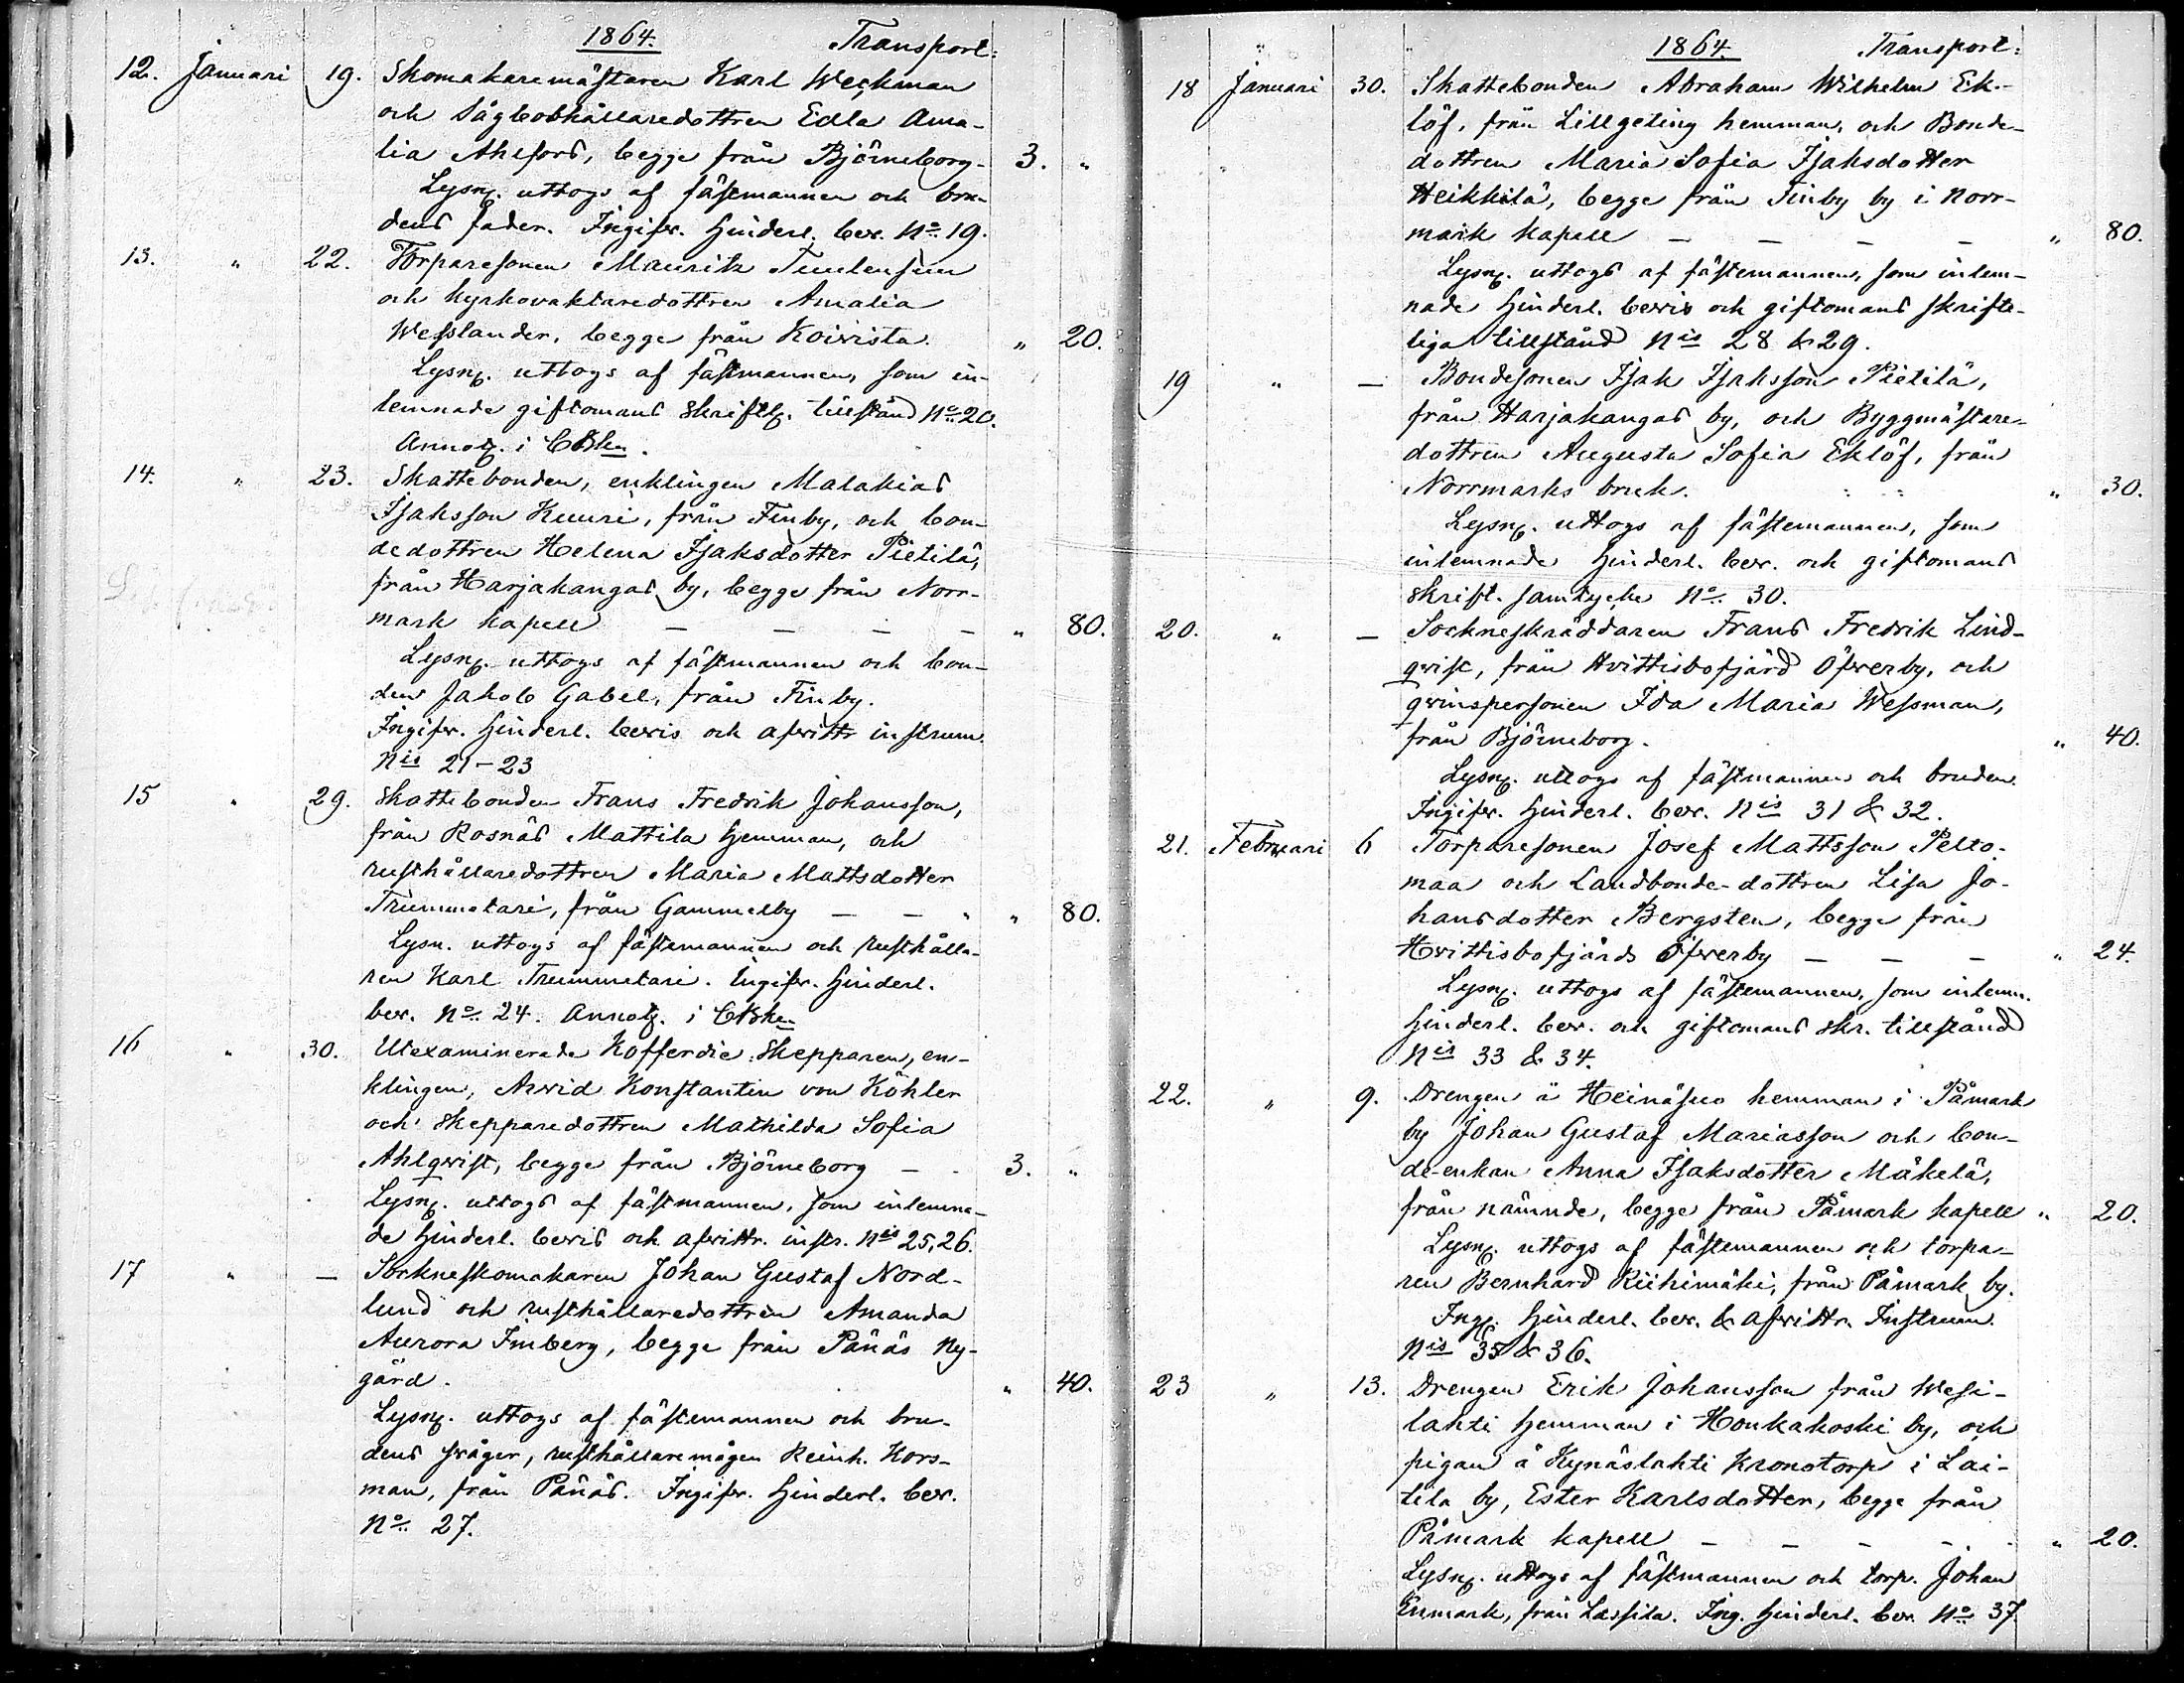 1864. Transport:
12. Januari 19. Skomakaremästaren Karl Weckman
och Sågbokhållaredottren Edla Ama-
lia Ahlfors, begge från Björneborg- 3. "
Lysng. uttogs af fästemannen och bru-
dens fader. Ingifv. Hinderl. bev. No. 19.
13. " 22. Torparesonen Maurits
och kyrkovaktaredottren Amalia
Wesslander, begge från Koivisto. " 20.
Lysng. uttogs af fästmannen, som in-
lemnade giftomans skriftlg. tillstånd No. 20.
Annotg. i
14. " 23. Skattebonden, enklingen Malakias
Isaksson Kuuri, från Finby, och bon-
dedottren Helena Isaksdotter Pietilä,
från Harjakangas by, begge från Norr-
mark kapell — — — — " 80.
Lysng. uttogs af fästmannen och bon-
den Jakob Gabel, från Finby.
Ingifv. Hinderl. bevis och afvittr instrum.
Nis 21-23
15 " 29. Skattebonden Frans Fredrik Johansson,
från Rosnäs Mattila hemman, och
rusthållaredottren Maria Mattsdotter
Trummetari, från Gammelby — — " " 80.
Lysn. uttogs af fästemannen och rusthålla-
ren Karl Trummetari. Ingifv. Hinderl.
bev. No. 24. Annotg. i
16 " 30. Utexaminerade Kofferdie-Skepparen, en-
klingen, Arvid Konstantin von Köhler
och Skepparedottren Mathilda Sofia
Ahlqvist, begge från Björneborg — - 3. "
Lysng. uttogs af fästmannen, som inlemna-
de Hinderl. bevis och afvittr. instr. Nis 25, 26.
17 " — Sockneskomakaren Johan Gustaf Nord-
lund och rusthållaredottren Amanda
Aurora Imberg, begge från Pänäs Ny-
gård. " 40.
Lysng. uttogs af fästemannen och bru-
dens svåger, rusthållaremågen Reinh. Kors-
man, från Pänäs. Ingifv. Hinderl. bev.
No. 27.
1864. Transport:
18 Januari 30. Skattebonden Abraham Wilhelm Ek-
löf, från Lillgeting hemman, och Bonde-
dottren Maria Sofia Isaksdotter
Heikkilä, begge från Finby by i Norr-
mark kapell — — — — " 80.
Lysng. uttogs af fästemannen, som inlem-
nade Hinderl. bevis och giftomans skrift-
liga tillstånd Nis 28 & 29.
19 " — Bondesonen Isak Isaksson Pietilä,
från Harjakangas by, och Byggmästare-
dottren Augusta Sofia Eklöf, från
Norrmarks bruk. " 30.
Lysng. uttogs af fästemannen, som
inlemnade Hinderl. bev. och giftomans
skrift. samtycke No. 30.
20. " — Sockneskräddaren Frans Fredrik Lind-
qvist, från Hvittisbofjärd Öfverby, och
qvinspersonen Ida Maria Wessman,
från Björneborg. " 40.
Lysng. uttogs af fästmannen och bruden.
Ingifv. Hinderl. bev. Nis 31 & 32.
21. Februari 6 Torparesonen Josef Mattsson Pelto-
maa och Landbonde-dottren Lisa Jo-
hansdotter Bergsten, begge från
Hvittisbofjärds Öfverby — — — " 24.
Lysng. uttogs af fästemannen, som inlemn.
Hinderl. bev. och giftomans skr. tillstånd
Nis 33 & 34.
22. " 9. Drengen å Heinäsuo hemman i Påmark
by Johan Gustaf Mariasson och bon-
de-enkan Anna Isaksdotter Mäkelä,
från nämnde, begge från Påmark kapell " 20.
Lysng. uttogs af fästemannen och torpa-
ren Bernhard Riihimäki, från Påmark by.
Ingf. Hinderl. bev. & afvittr. Instrum.
Nis 35 & 36.
23 " 13. Drengen Erik Johansson från Wesi-
lahti hemman i Honkakoski by, och
pigan å Kynäslahti Kronotorp i Lai-
tila by, Ester Karlsdotter, begge från
Påmark kapell — — — — " 20.
Lysng. uttogs af fästmannen och torp. Johan
Enmark, från Lassila. Ing. Hinderl. bev. No. 37